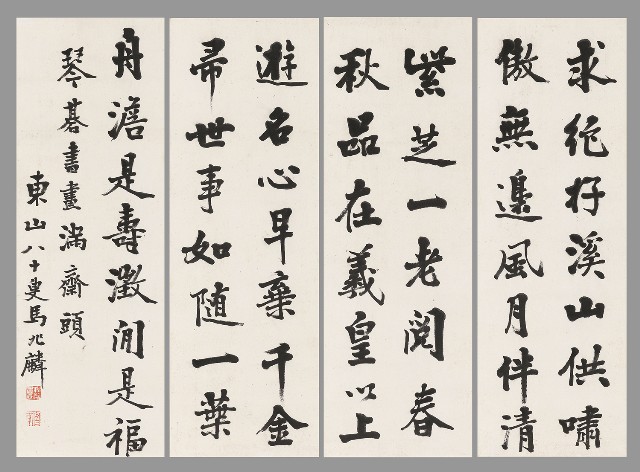 求絕好溪山供嘯
傲無邊風月伴清
紫芝一老閱春
秋品在羲皇以上
遊名心早棄千金
帚世事如隨一葉
舟澹是壽徵閒是福
琴碁書畫滿齋頭
東山八十叟馬兆麟